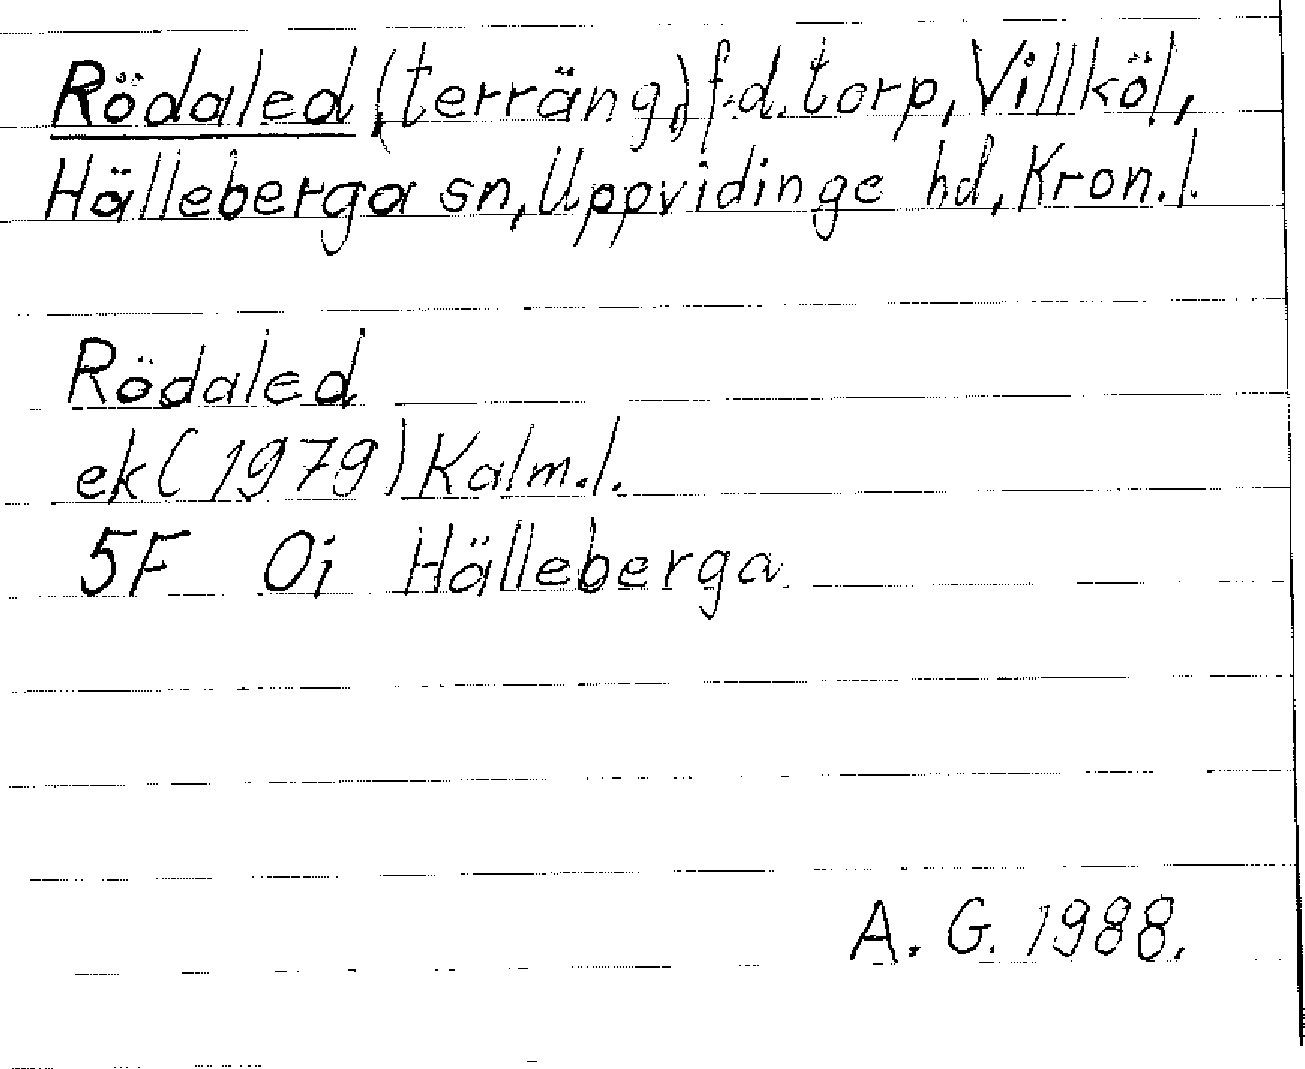 Rödaled (terräng,) f.d. torp, Villköl,
Hälleberga sn, Uppvidinge hd, Kron.l.
Rödaled
ek (1979) Kalm.l.
5F 0i Hälleberga
A. G. 1988.